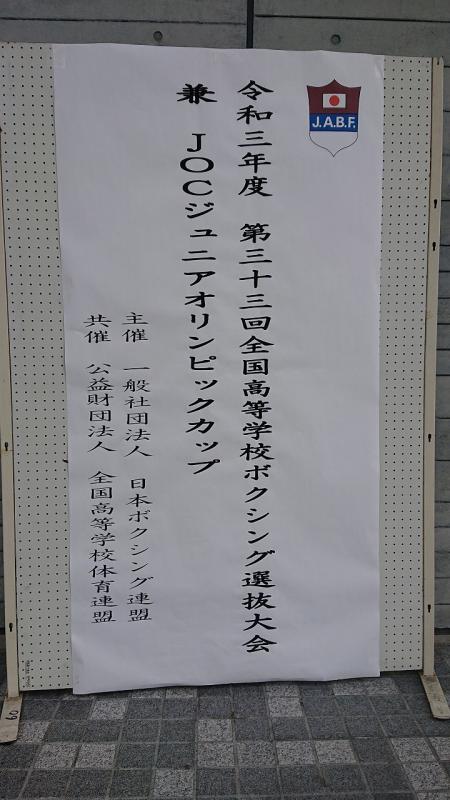 J.A.B.F.
令和三年度 第三十三回全国高等学校ボクシング選抜大会
兼 JOCジュニアオリンピックカップ
主催 一般社団法人 日本ボクシング連盟
共催 公益財団法人 全国高等学校体育連盟